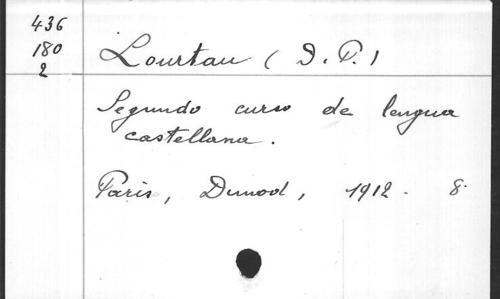 436
180
2
Lourtau (D. P.)
Segundo curso de lengua
castellana.
Paris, Dunod, 1912. 8.